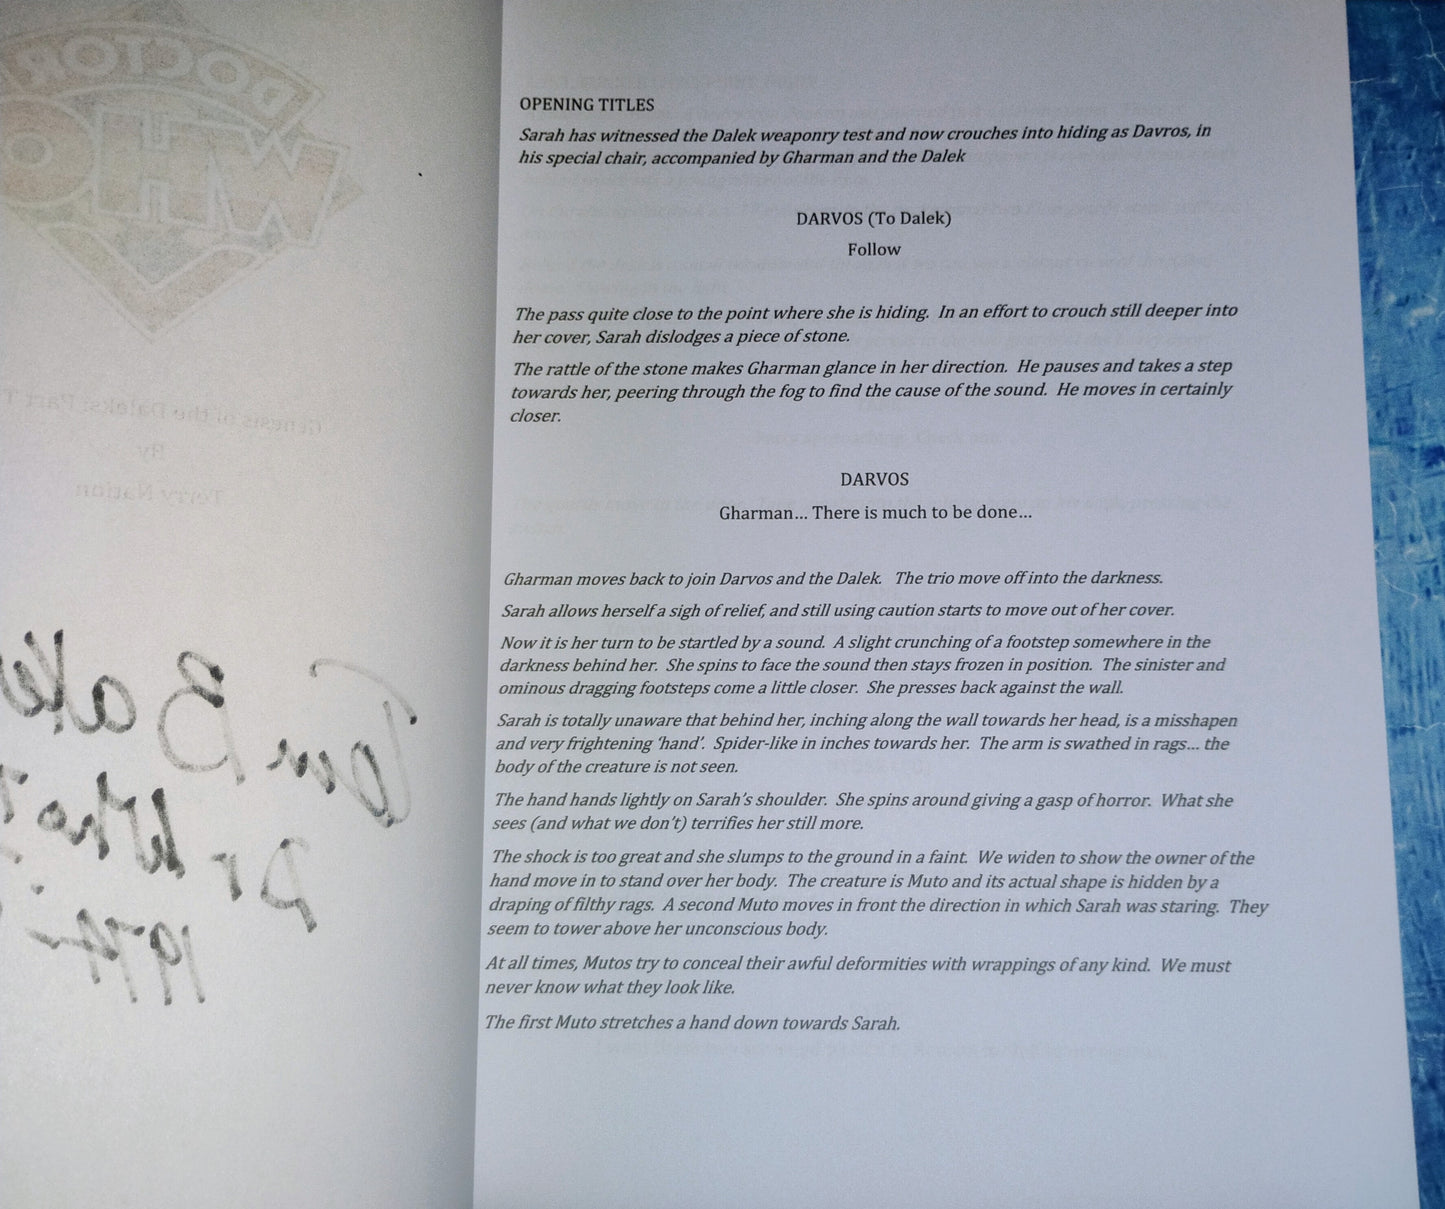 DOCTOR
WHO
Genesis of the Daleks: Part
By
Terry Nation
Tom Baker
Dr Who
OPENING TITLES
Sarah has witnessed the Dalek weaponry test and now crouches into hiding as Davros, in
his special chair, accompanied by Gharman and the Dalek
DARVOS (To Dalek)
Follow
The pass quite close to the point where she is hiding. In an effort to crouch still deeper into
her cover, Sarah dislodges a piece of stone.
The rattle of the stone makes Gharman glance in her direction. He pauses and takes a step
towards her, peering through the fog to find the cause of the sound. He moves in certainly
closer.
DARVOS
Gharman... There is much to be done...
Gharman moves back to join Darvos and the Dalek. The trio move off into the darkness.
Sarah allows herself a sigh of relief, and still using caution starts to move out of her cover.
Now it is her turn to be startled by a sound. A slight crunching of a footstep somewhere in the
darkness behind her. She spins to face the sound then stays frozen in position. The sinister and
ominous dragging footsteps come a little closer. She presses back against the wall.
Sarah is totally unaware that behind her, inching along the wall towards her head, is a misshapen
and very frightening ‘hand’. Spider-like in inches towards her. The arm is swathed in rags... the
body of the creature is not seen.
The hand hands lightly on Sarah’s shoulder. She spins around giving a gasp of horror. What she
sees (and what we don’t) terrifies her still more.
The shock is too great and she slumps to the ground in a faint. We widen to show the owner of the
hand move in to stand over her body. The creature is Muto and its actual shape is hidden by a
draping of filthy rags. A second Muto moves in front the direction in which Sarah was staring. They
seem to tower above her unconscious body.
At all times, Mutos try to conceal their awful deformities with wrappings of any kind. We must
never know what they look like.
The first Muto stretches a hand down towards Sarah.